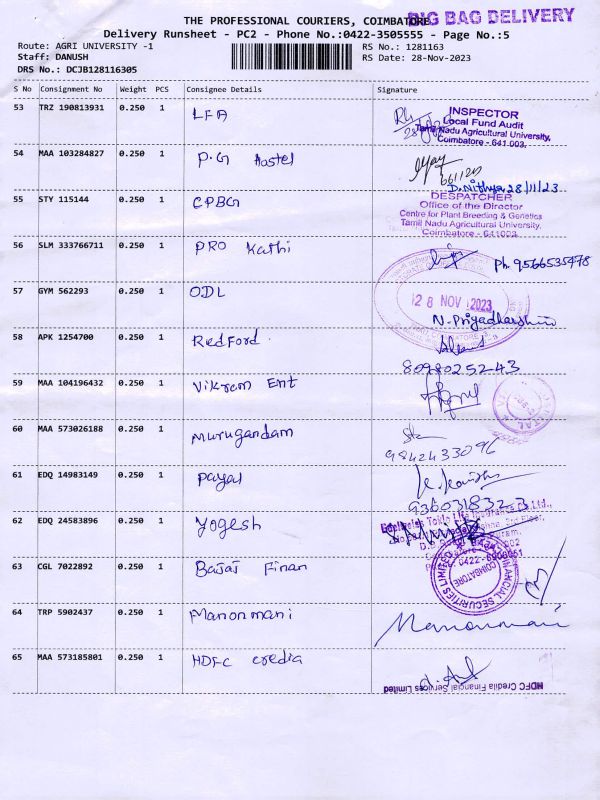 BIG BAG DELIVERY
THE PROFESSIONAL COURIERS, COIMBATORE
Delivery Runsheet - PC2 - Phone No.:0422-3505555 - Page No.:5
Route: AGRI UNIVERSITY -1
RS No.: 1281163
Staff: DANUSH
RS Date: 28-Nov-2023
DRS No.: DCJB128116305
S No Consignment No Weight PCS Consignee Details Signature
53 TRZ 190813931 0.250 1 LFA
INSPECTOR
Local Fund Audit
Tamil Nadu Agricultural University,
Coimbatore - 641 003.
54 MAA 103284827 0.250 1 P.G Hostel
D.Nithya 28/11/23
55 STY 115144 0.250 1 CPBG
DESPATCHER
Office of the Director
Centre for Plant Breeding & Genetics
Tamil Nadu Agricultural University,
Coimbatore - 641003.
56 SLM 333766711 0.250 1 PRO Kathi
Ph. 9566535478
57 GYM 562293 0.250 1 ODL
28 NOV 2023
N. Priyadharshini
58 APK 1254700 0.250 1 Redford
8098025243
59 MAA 104196432 0.250 1 Vikram Ent
60 MAA 573026188 0.250 1 Murugandam
9842433096
61 EDQ 14983149 0.250 1 Payal
9360318323
62 EDQ 24583896 0.250 1 Yogesh
Edelweiss Tokio Life Insurance Co.Ltd.,
63 CGL 7022892 0.250 1 Bajaj Finan
FINANCIAL SECURITIES LIMITED
COIMBATORE
64 TRP 5902437 0.250 1 Manonmani
Manonmani
65 MAA 573185801 0.250 1 HDFC credia
HDFC Credila Financial Services Limited